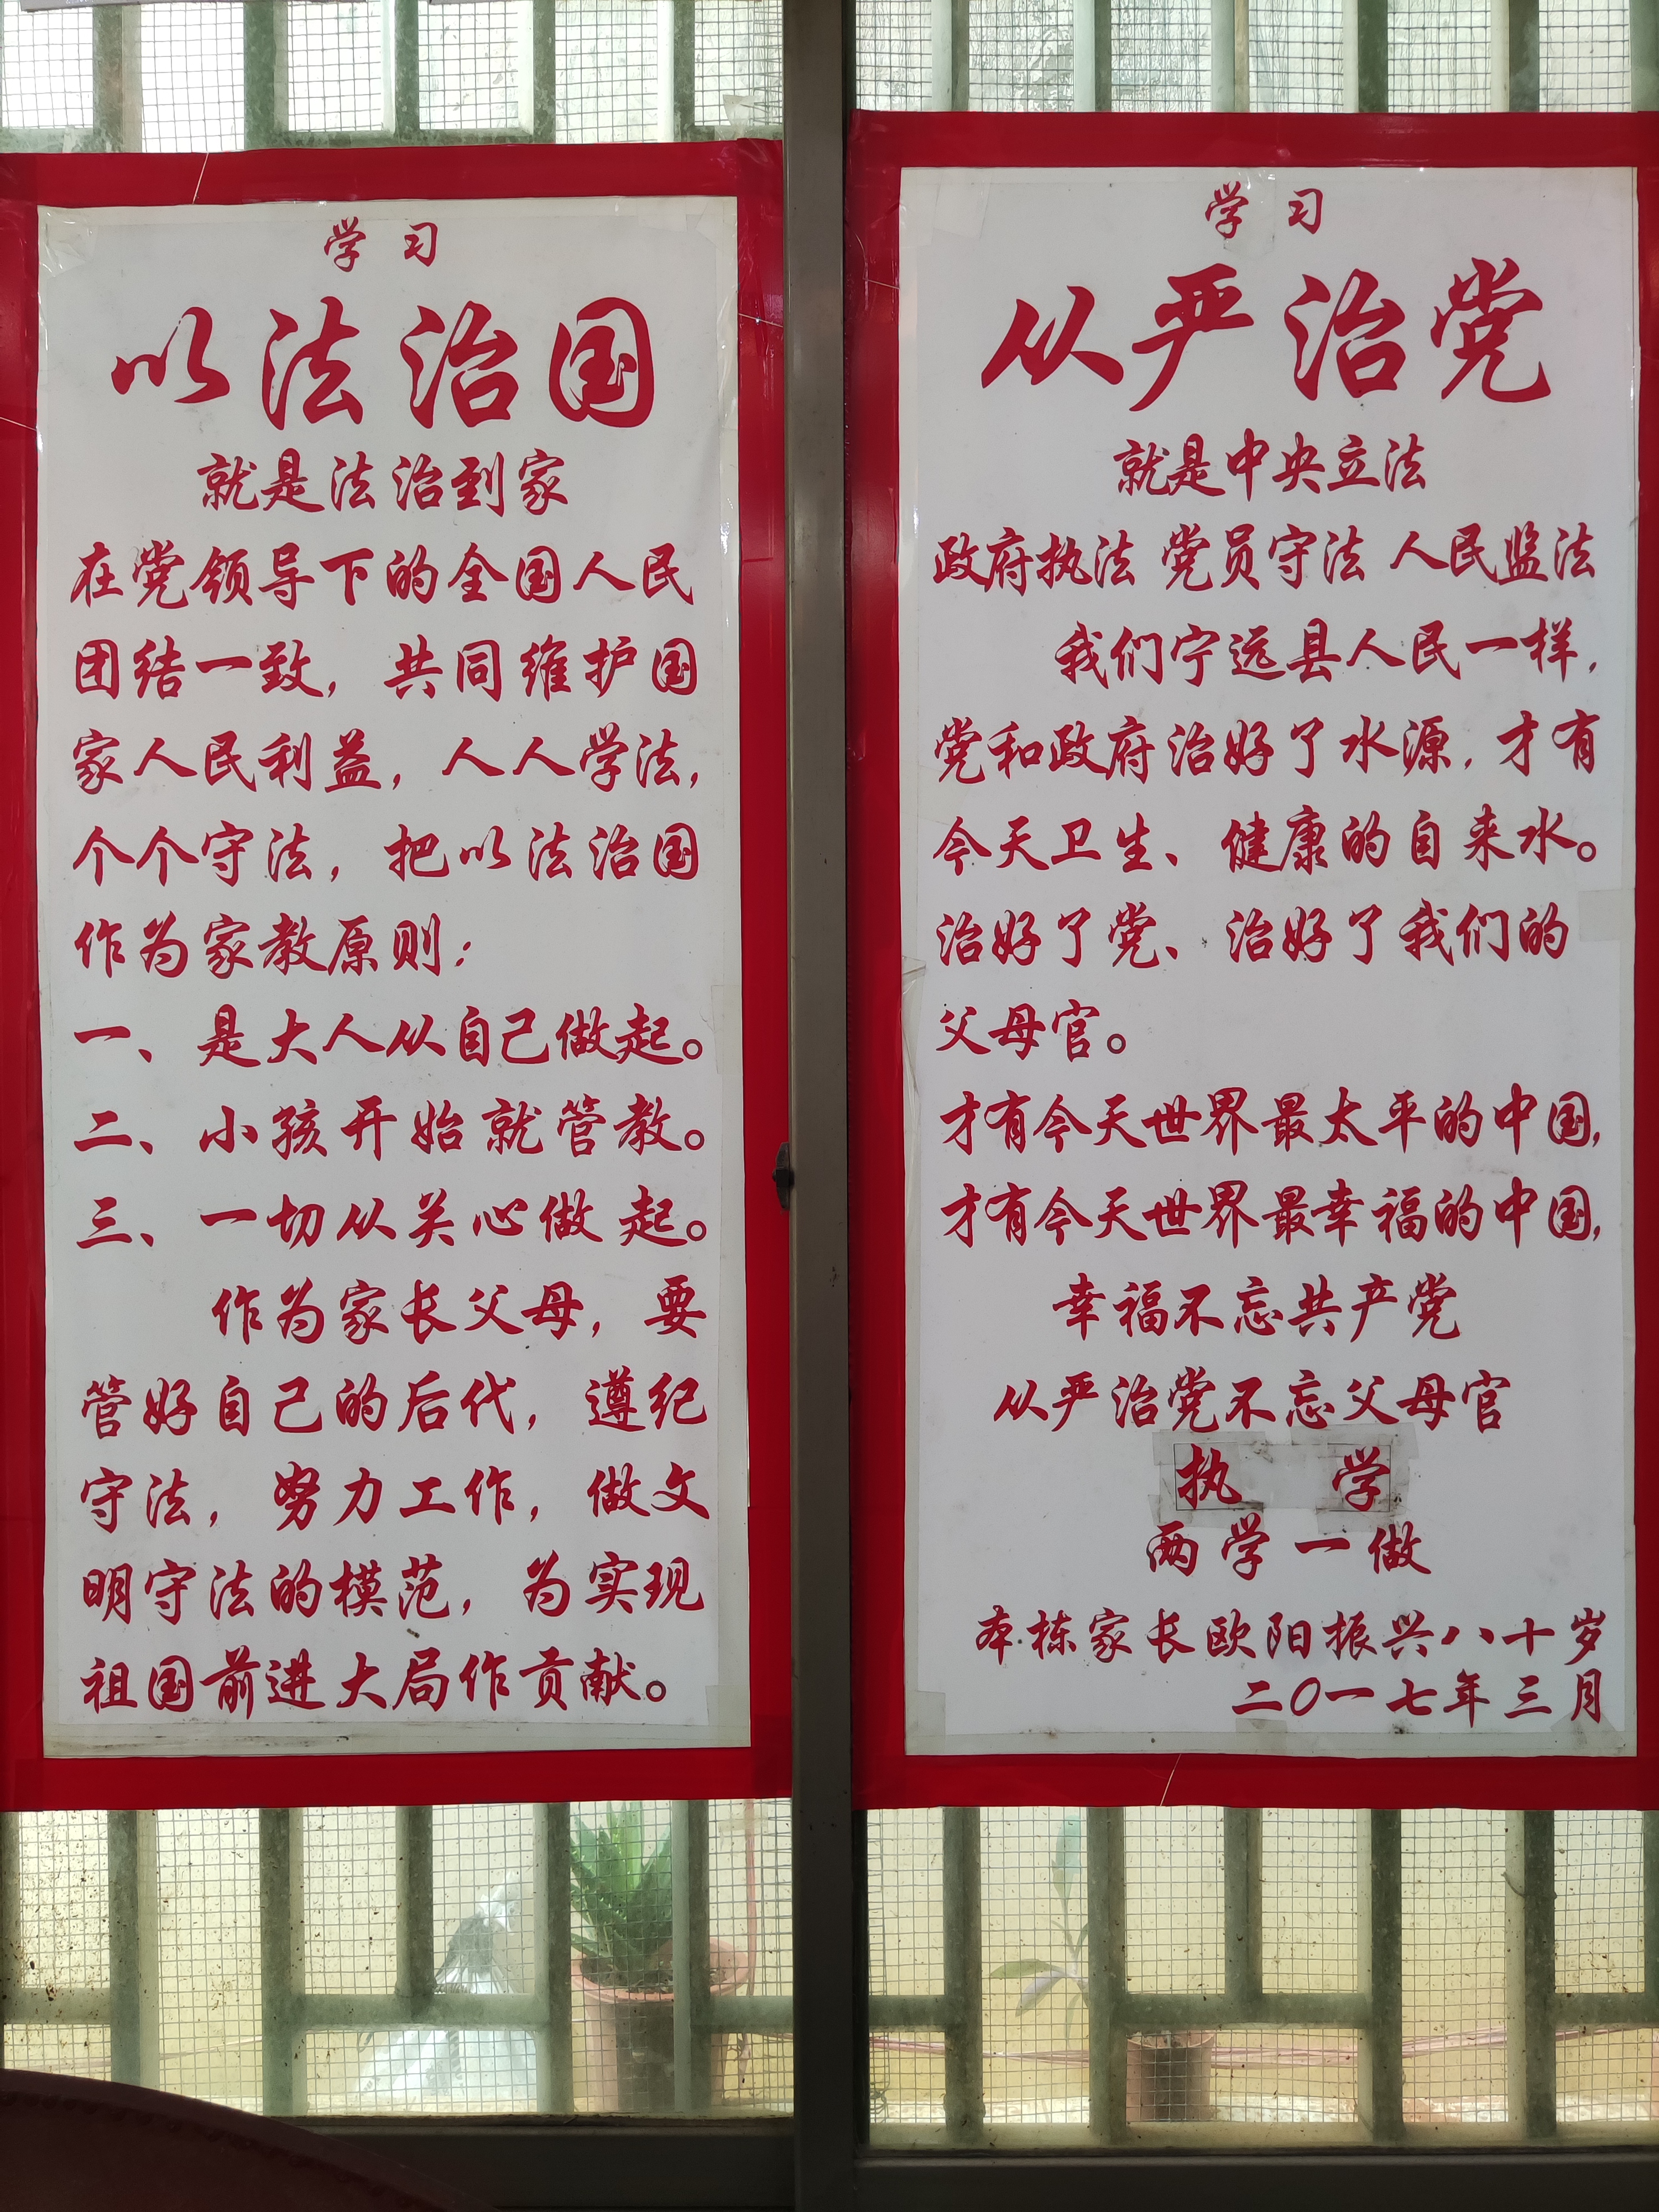 学习
以法治国
就是法治到家
在党领导下的全国人民
团结一致，共同维护国
家人民利益，人人学法，
个个守法，把以法治国
作为家教原则：
一、是大人从自己做起。
二、小孩开始就管教。
三、一切从关心做起。
作为家长父母，要
管好自己的后代，遵纪
守法，努力工作，做文
明守法的模范，为实现
祖国前进大局作贡献。
学习
从严治党
就是中央立法
政府执法 党员守法 人民监法
我们宁远县人民一样，
党和政府治好了水源，才有
今天卫生、健康的自来水。
治好了党、治好了我们的
父母官。
才有今天世界最太平的中国，
才有今天世界最幸福的中国，
幸福不忘共产党
从严治党不忘父母官
执 学
两学一做
本栋家长欧阳振兴八十岁
二〇一七年三月